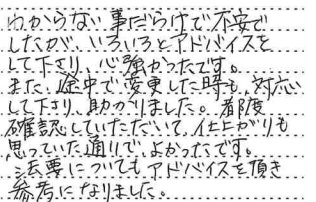 わからない事だらけで不安で
したが、いろいろとアドバイスを
して下さり、心強かったです。
また、途中で変更した時も、対応
して下さり、助かりました。都度
確認していただいて、仕上がりも
思っていた通りで、よかったです。
法要についてもアドバイスを頂き
参考になりました。